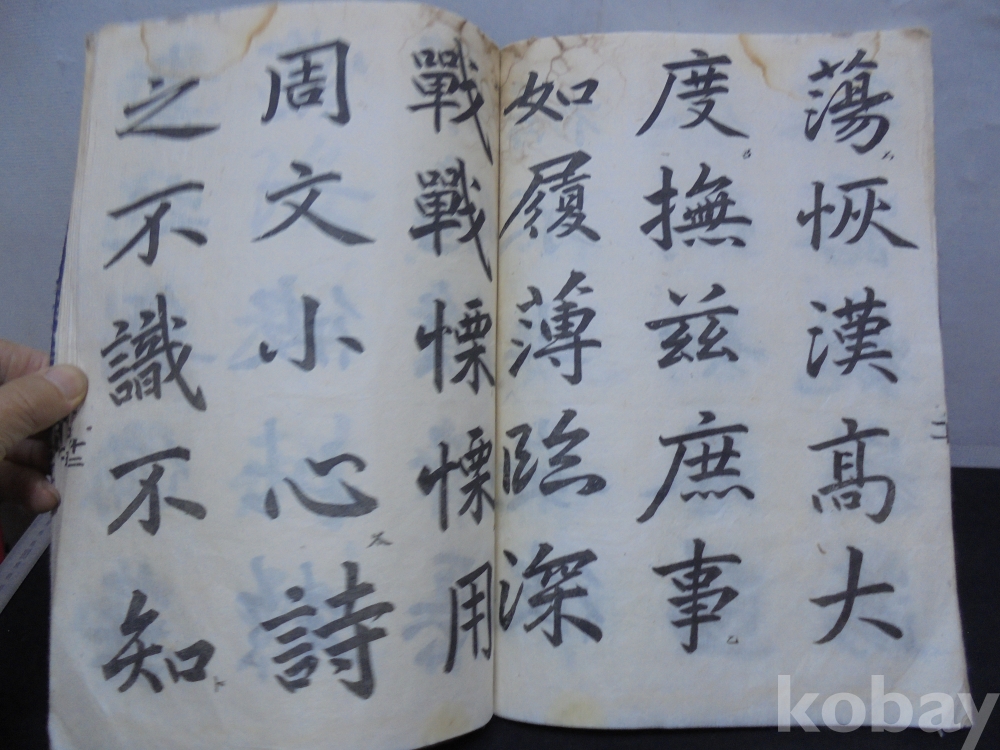 蕩恢漢高大
度撫茲庶事
如履薄臨深
戰戰慄慄用
周文小心詩
之不識不知
二
十二
kobay